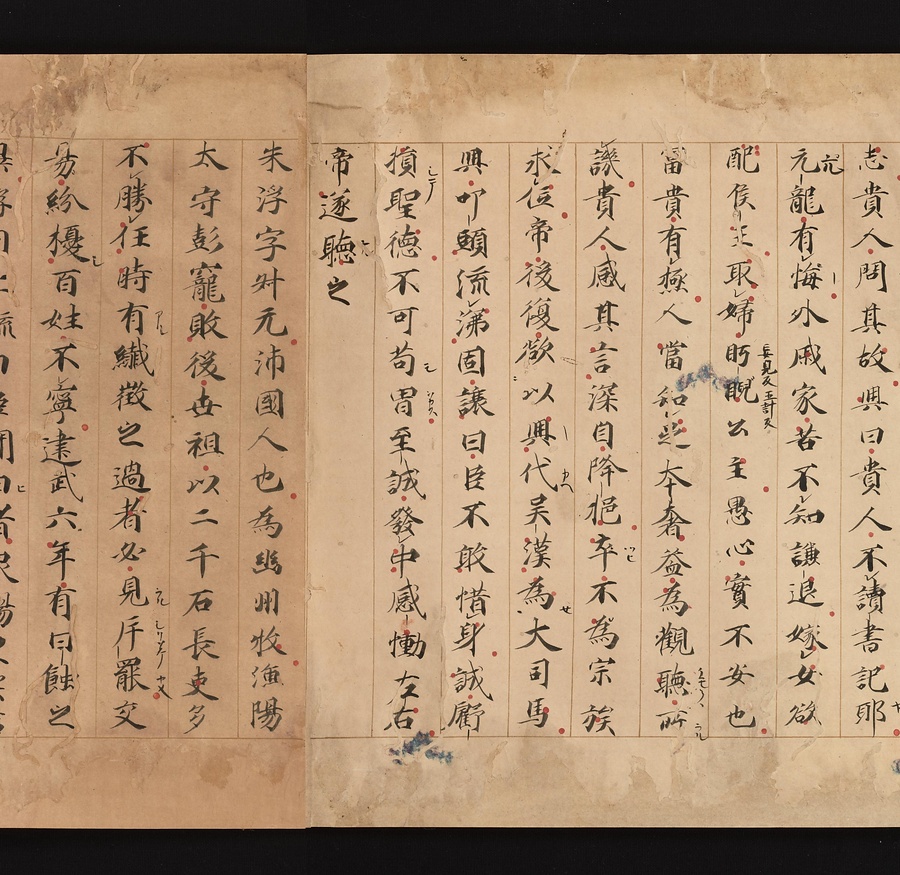 志貴人問其故興曰貴人不讀書記耶
亢
元龍有悔外戚家苦不知謙退嫁女欲
配侯王取婦眄睨公主愚心實不安也
見反五計反
富貴有極人當知足夸奢益為觀聽所
譏貴人感其言深自降挹卒不為宗族
求位帝後復欲以興代吳漢為大司馬
興叩頭流涕固讓曰臣不敢惜身誠虧
損聖德不可苟冒至誠發中感慟左右
帝遂聽之
朱浮字叔元沛國人也為幽州牧漁陽
太守彭寵敗後世祖以二千石長吏多
不勝任時有纖微之過者必見斥罷交
易紛擾百姓不寧建武六年有日蝕之